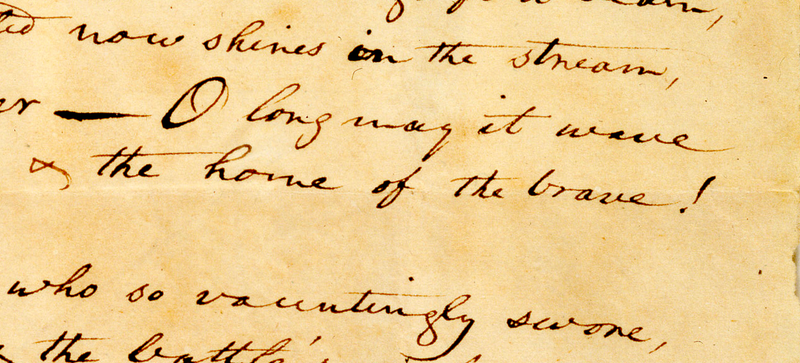 now shines in the stream,
— O long may it wave
& the home of the brave!
who so vauntingly swore,
the battle's